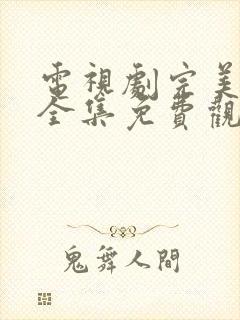 電視劇完美
全集免費觀
鬼舞人間